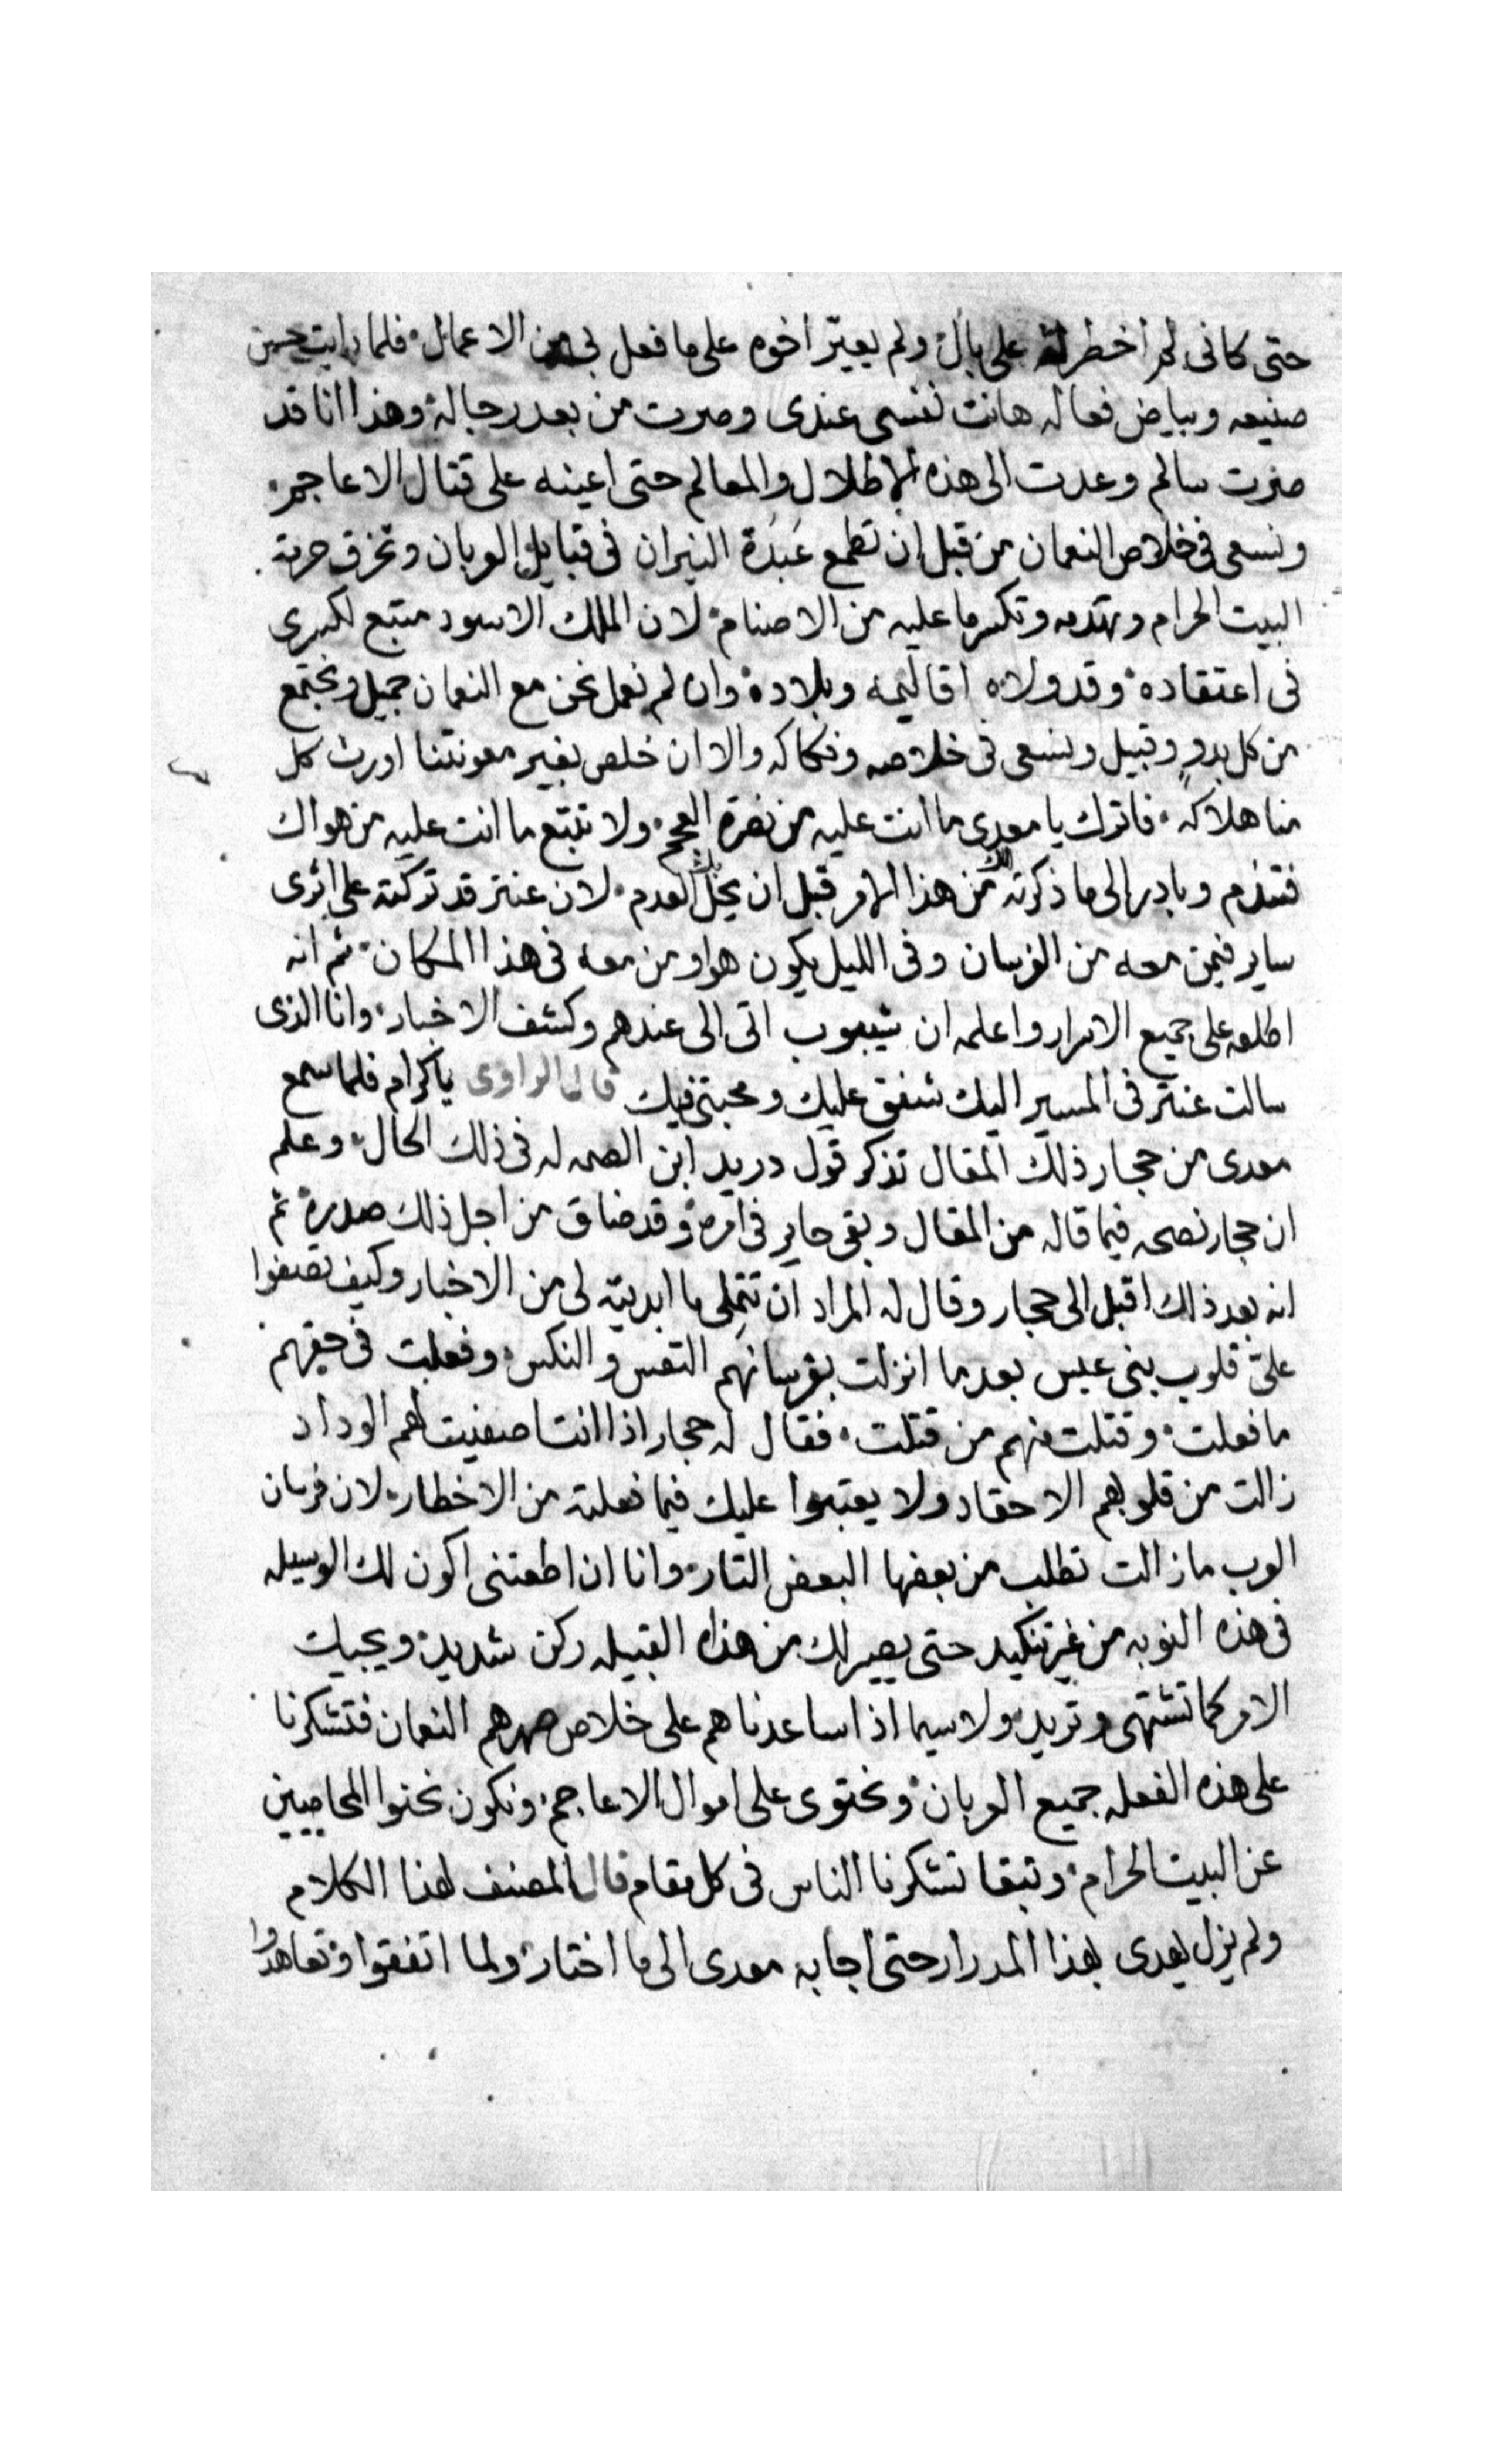 حتى كانى لم اخطر له على بال ولم يعيّر اخوه على ما فعل بى من الاعمال فلما رايت حسن
صنيعه وبياض فعاله هانت نفسى عندى وصرت من بعد رجاله وهذا انا قد
صرت سالم وعدت الى هذه الاطلال والمعالم حتى اعينه على قتال الاعاجم
ونسعى فى خلاص النعمان من قبل ان تطمع عَبَدَة النيران فى قبايل العربان وتخرق حرمة
البيت الحرام وتهدمه وتكسر ما عليه من الاصنام لان الملك الاسود متبع لكسرى
فى اعتقاده وقد ولاه اقاليمه وبلاده وان لم نعمل نحن مع النعمان جميل ونجتمع
من كل بدو وقبيل ونسعى فى خلاصه وفكاكه والا ان خلص بغير معونتنا اورث كل
منا هلاكه فاترك يا معدى ما انت عليه من نصرة العجم ولا تتبع ما انت عليه من هواك
فتندم وبادر الى ما ذكرته لك من هذا الامر قبل ان يحل بك العدم لان عنتر قد تركته على اثرى
ساير فيمن معه من الفرسان وفى الليل يكون هو او من معه فى هذا المكان ثم انه
اطلعه على جميع الاسرار واعلمه ان شيبوب اتى الى عندهم وكشف الاخبار وانا الذى
سالت عنتر فى المسير اليك شفق عليك ومحبتى فيك قال الراوى ياكرام فلما سمع
معدى من حجار ذلك المقال تذكر قول دريد ابن الصمه له فى ذلك الحال وعلم
ان حجار نصحه فيما قاله من المقال وبقى حاير فى امره وقد ضاق من اجل ذلك صدره ثم
انه بعد ذلك اقبل الى حجار وقال له المراد ان تتملى ما ابديته لى من الاخبار وكيف تصفوا
علىّ قلوب بنى عبس بعد ما انزلت بفرسانهم التعس والنكس وفعلت فى حقهم
ما فعلت وقتلت منهم من قتلت فقال له حجار اذا انت اصفيت لهم الوداد
زالت من قلوبهم الاحقاد ولا يعتبوا عليك فيما فعلته من الاخطار لان فرسان
العرب مازالت تطلب من بعضها البعض التار وانا ان اطعتنى اكون لك الوسيله
فى هذه النوبه من غير تنكيد حتى يصير لك من هذه القبيله ركن شديد ويجيك
الامر كما تشتهى وتريد ولا سيما اذا ساعدناهم على خلاص صهرهم النعمان فتشكرنا
على هذه الفعله جميع العربان ونحتوى على اموال الاعاجم ونكون نحنوا المحاميين
عن البيت الحرام وتبقا تشكرنا الناس فى كل مقام قال المصنف لهذا الكلام
ولم يزل بمعدى بهذا المدرار حتى اجابه معدى الى ما اختار ولما اتفقوا وتعاهدوا